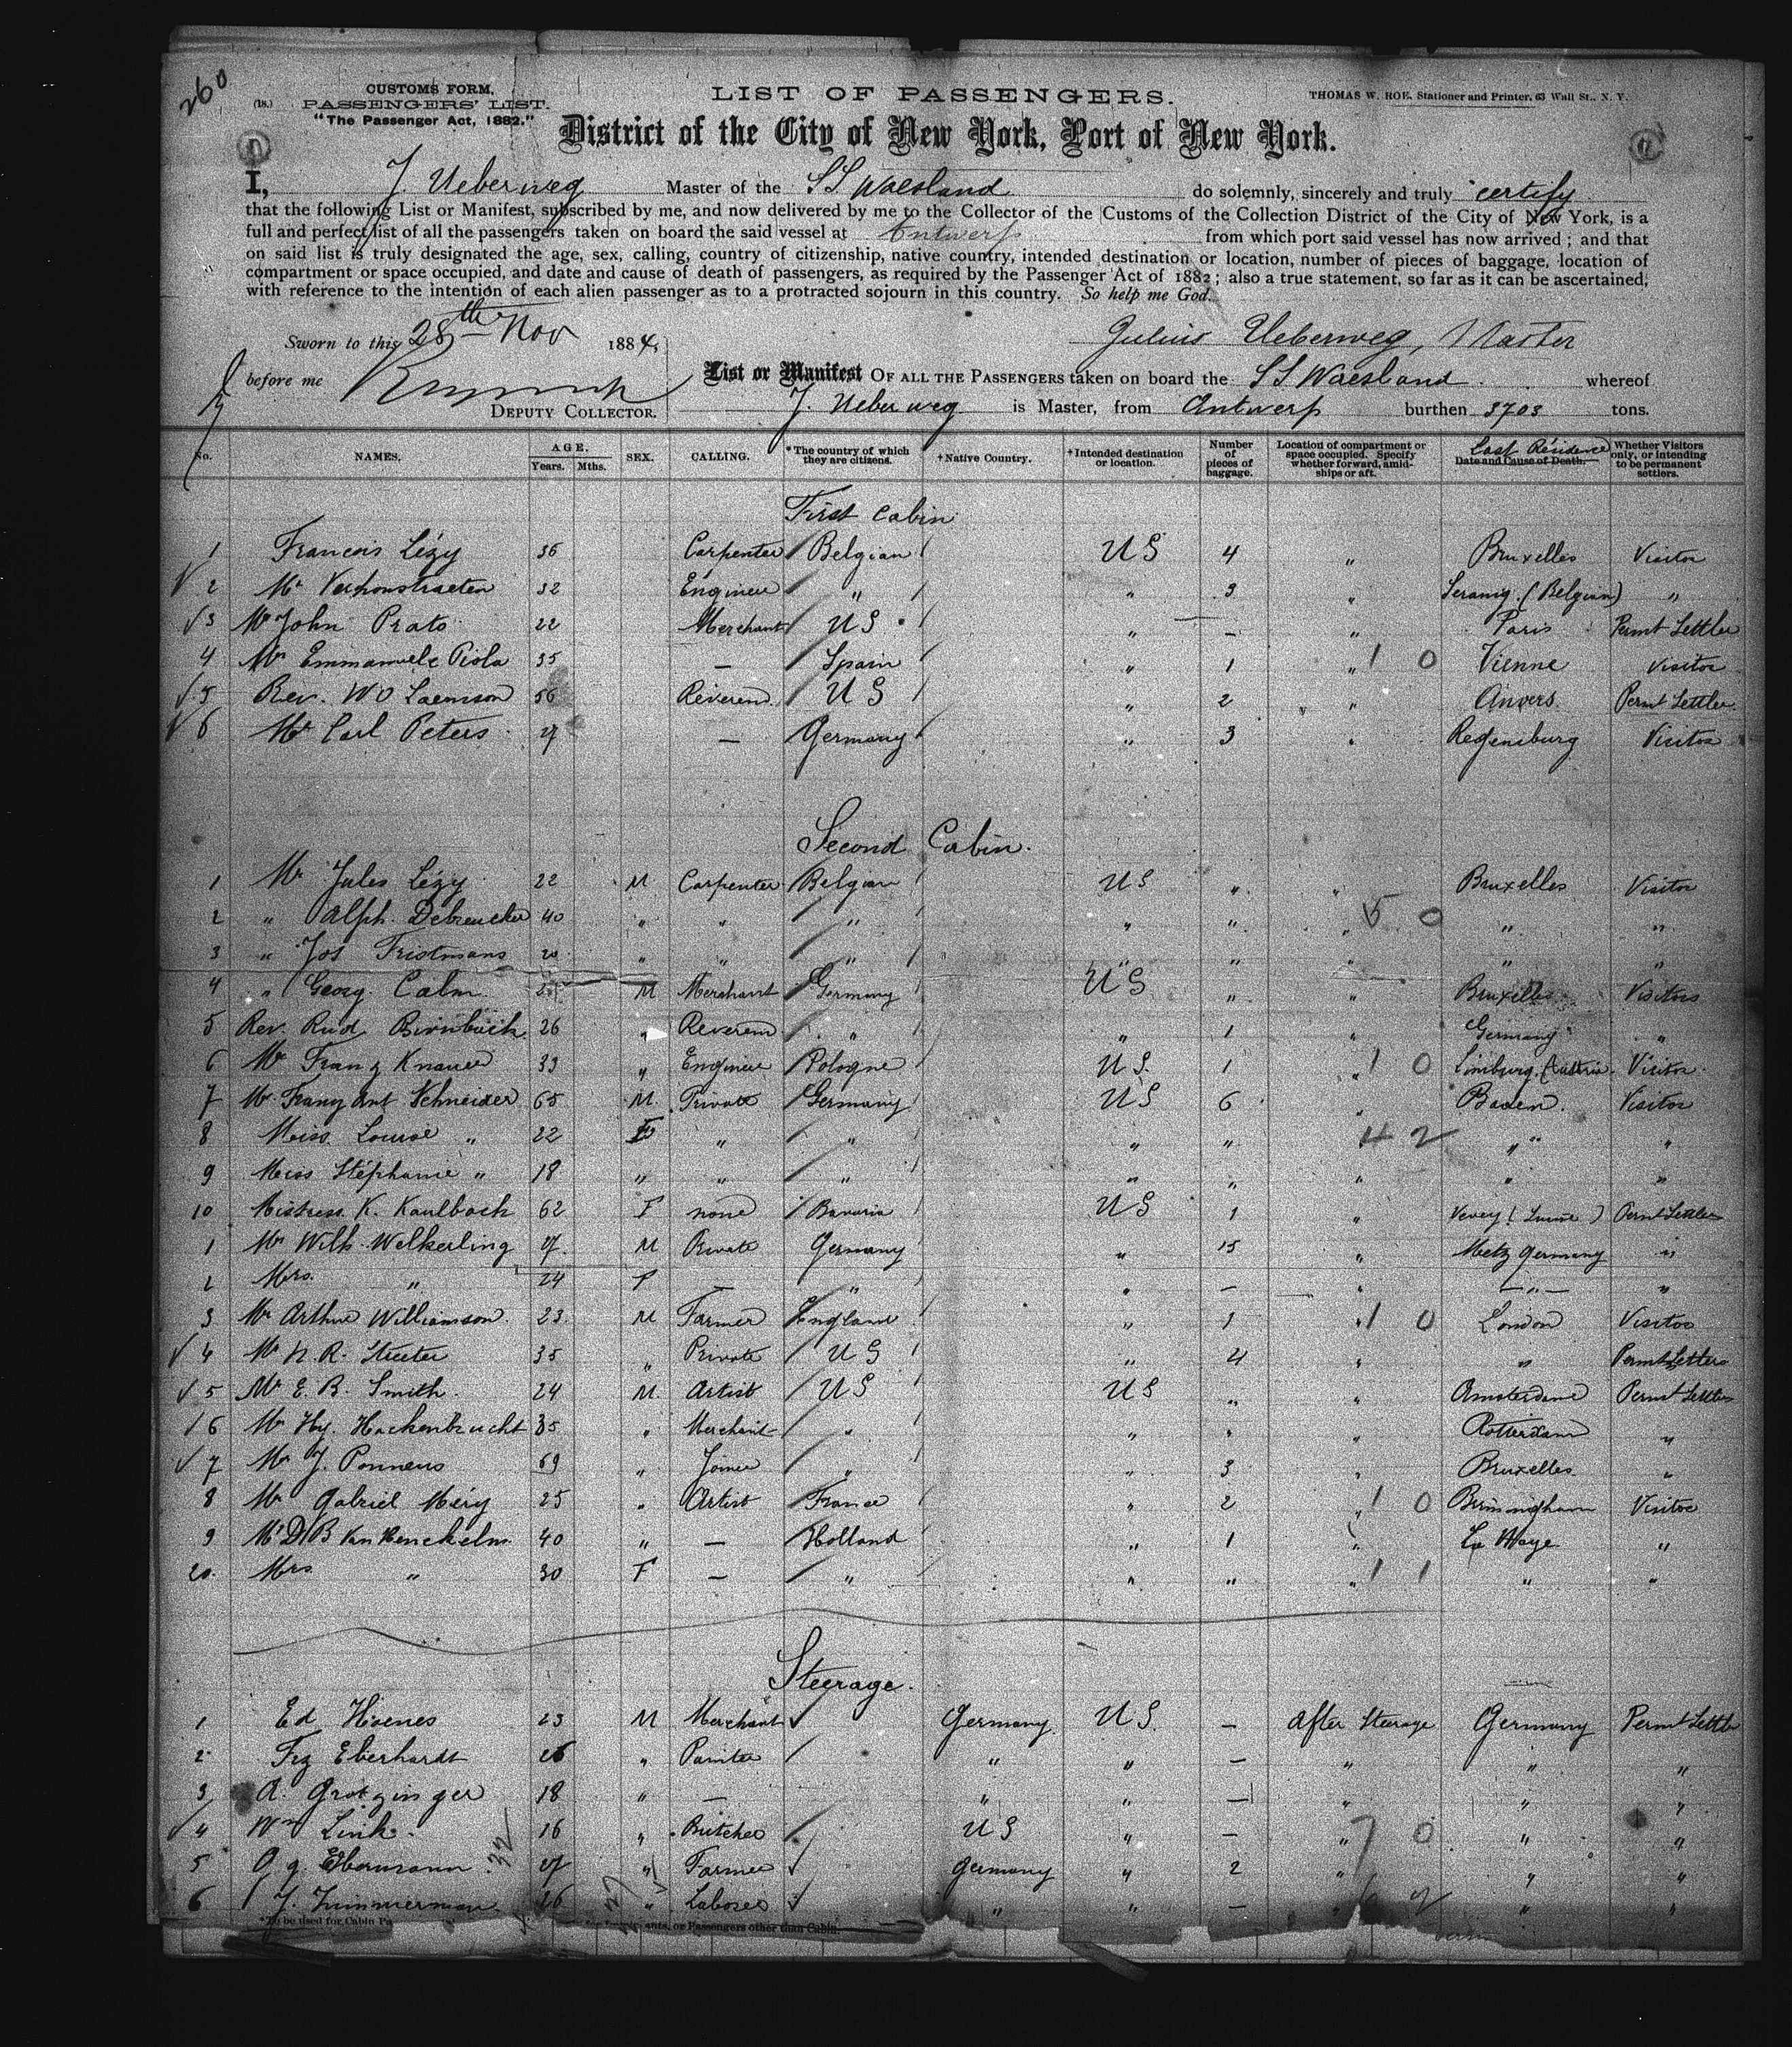 260
CUSTOMS FORM.
(18.) PASSENGERS' LIST.
"The Passenger Act, 1882."
LIST OF PASSENGERS.
THOMAS W. ROE, Stationer and Printer, 63 Wall St., N. Y.
District of the City of New York, Port of New York.
I, J. Ueberweg Master of the SS Waesland do solemnly, sincerely and truly certify
that the following List or Manifest, subscribed by me, and now delivered by me to the Collector of the Customs of the Collection District of the City of New York, is a
full and perfect list of all the passengers taken on board the said vessel at Antwerp from which port said vessel has now arrived; and that
on said list is truly designated the age, sex, calling, country of citizenship, native country, intended destination or location, number of pieces of baggage, location of
compartment or space occupied, and date and cause of death of passengers, as required by the Passenger Act of 1882; also a true statement, so far as it can be ascertained,
with reference to the intention of each alien passenger as to a protracted sojourn in this country. So help me God.
Sworn to this 28th Nov 1884,
Julius Ueberweg, Master
before me
DEPUTY COLLECTOR.
List or Manifest OF ALL THE PASSENGERS taken on board the SS Waesland whereof
J. Ueberweg is Master, from Antwerp burthen 3703 tons.
No. NAMES. AGE. Years. Mths. SEX. CALLING. *The country of which they are citizens. †Native Country. †Intended destination or location. Number of pieces of baggage. Location of compartment or space occupied. Specify whether forward, amidships or aft. Last Résidence Date and Cause of Death. Whether Visitors only, or intending to be permanent settlers.
First Cabin
1 Francois Lézy 36 Carpenter Belgian US 4 " Bruxelles Visitor
2 Mr Verhonstraeten 32 Engineer " " 3 " Seraing (Belgian) "
3 Mr John Prato 22 Merchant US " — " Paris Permt Settler
4 Mr Emmanuele Piola 35 — Spain " 1 " 1 0 Vienne Visitor
5 Rev. W O Laemson 56 Reverend US " 2 " Anvers Permt Settler
6 Mr Carl Peters 27 — Germany " 3 " Regensburg Visitor
Second Cabin.
1 Mr Jules Lézy 22 M Carpenter Belgian US " " Bruxelles Visitor
2 " Alph. Debreucker 40 " " " " " " 5 0 " "
3 " Jos Tristmans 20 " " " " " " " "
4 " Georg. Calm M Merchant Germany US " " Bruxelles Visitors
5 Rev. Rud Birnbach 26 " Reverend " " 1 " Germany "
6 Mr Franz Knauer 33 " Engineer Pologne US. 1 " 1 0 Limburg (Austria Visitor
7 Mr Franz Ant Schneider 65 M. Private Germany US 6 " Baden. Visitor
8 Miss Louise " 22 F " " " " 4 2 " "
9 Miss Stéphanie " 18 " " " " " " " "
10 Mistress K. Kaulbach 62 F none Bavaria US 1 " Vevey (Suisse) Permt Settler
1 Mr Wilh. Welkerling 27. M Private Germany " 15 " Metz Germany "
2 Mrs. " 24 F — " " — " — " — "
3 Mr Arthur Williamson. 23. M Farmer England " 1 " 1 0 London Visitor
4 Mr N. R. Streeter 35 " Private US " 4 " " Permt Settlers
5 Mr E. B. Smith. 24 M. Artist US US " " Amsterdam Permt Settlers
6 Mr Hy. Hackenbrucht 35 " Merchant " " " " Rotterdam "
7 Mr J. Ponneus 69 " Joiner " " 3 " Bruxelles "
8 Mr Gabriel Méry 25 " Artist France " 2 " 1 0 Birmingham Visitor
9 Mr D B Van Henckelm 40 " — Holland " 1 " La Haye "
20. Mrs " 30 F — " " " " 1 1 " "
Steerage.
1 Ed Hoenes 23 M Merchant Germany US. — After Steerage Germany Permt Settler
2 Frz Eberhardt 26 " Painter " " — " " "
3 A. Grotzinger 18 " — " " — " " "
4 Wm Link. 16 " Butcher US " — " 7 0 " "
5 27 " Farmer Germany " 2 " " "
6 J. Zimmerman 26 " Laborer " " — " " "
*To be used for Cabin Pa
ants, or Passengers other than Cabin.